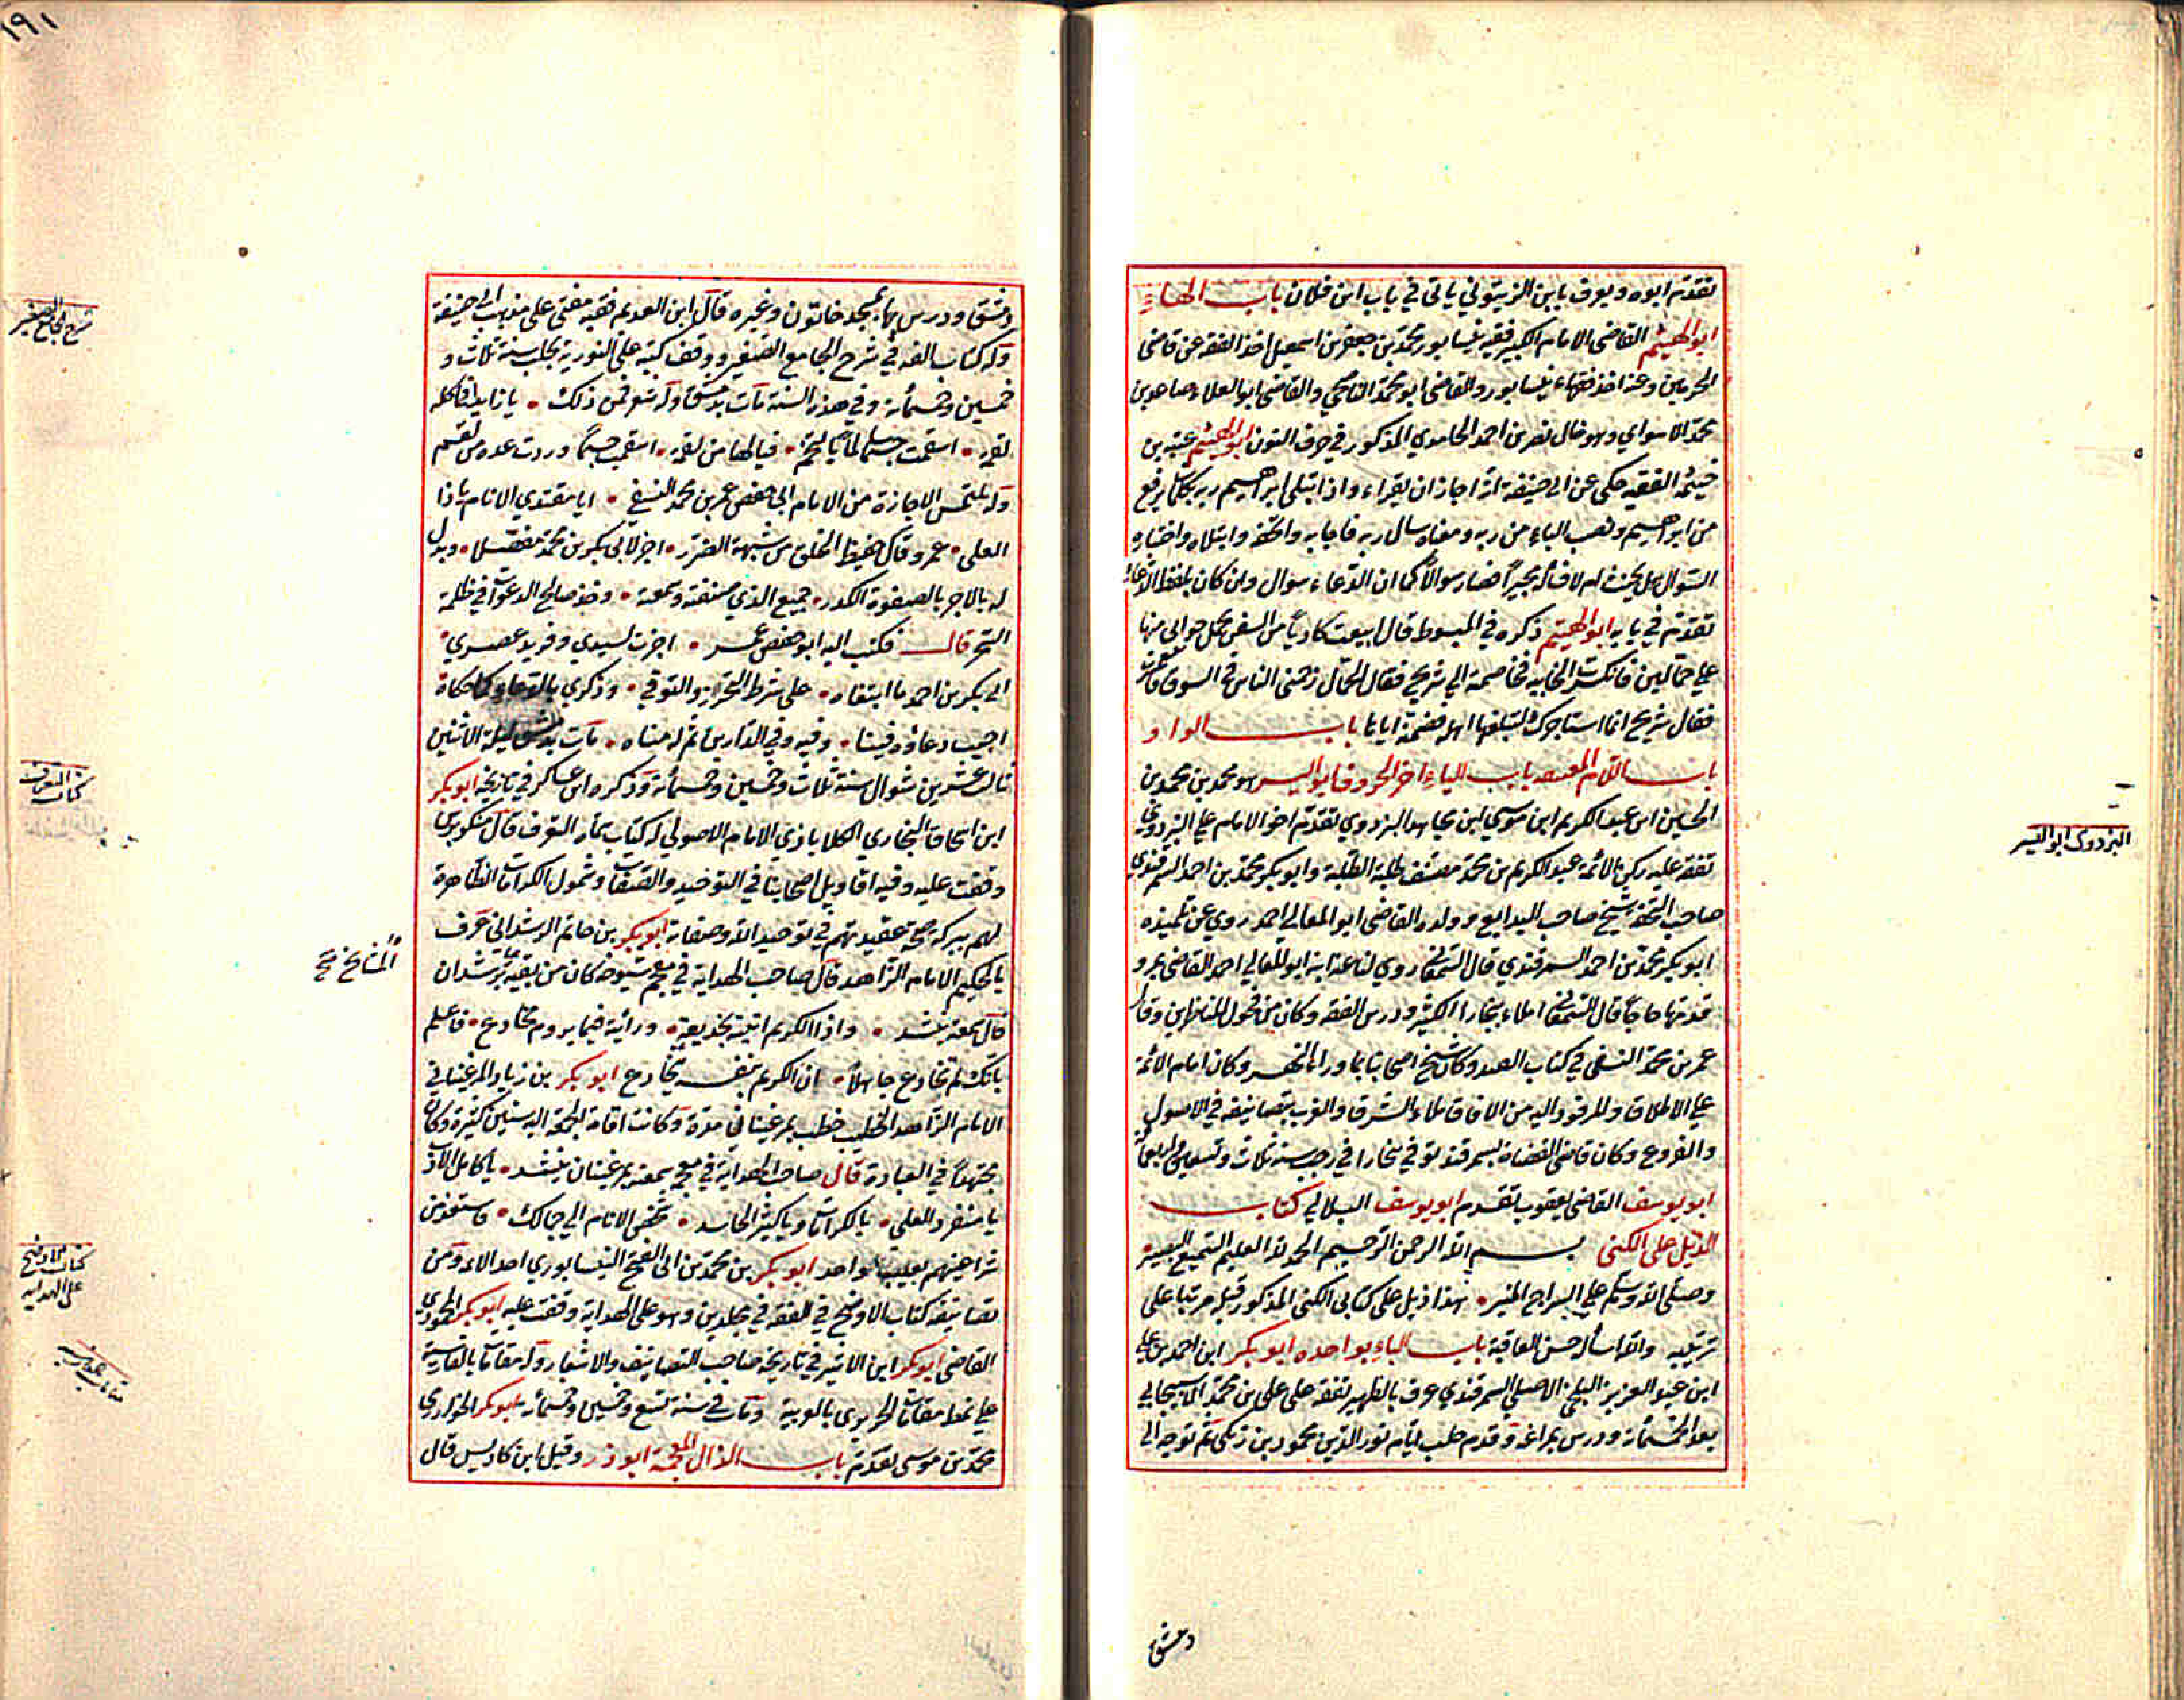 تقدم ابوه ويعرف بابن الزيتوني ياتي في باب ابن فلان باب الهاء
ابو الهيثم القاضي الامام الكبير فقيه نيسابور محمد بن جعفر بن اسمعيل اخذ الفقه عن قاضي
الحرمين وعنه اخذ فقهاء نيسابور والقاضي ابو محمد الناصحي والقاضي ابو العلاء صاعد بن
محمد الاستواي وهو خال نصر بن احمد المذكور في حرف النون ابو الهيثم عتبة بن
خيثمة الفقيه حكى عن ابي حنيفة انه اجاز ان يقراء واذا ابتلى ابراهيم ربه بكلمات برفع
من ابراهيم ونصب الباء من ربه ومعناه سال ربه فاجابه وابتلاه واختباره
السوال هل يجيب ام لا فصار سوالا كما ان الدعاء سوال وان كان بلفظ الدعاء
تقدم في بابه ابو الهيثم ذكره في المبسوط قال ابتعت من السفن فحمل خوابي منها
على حمالين فانكسرت الخابيه فخاصمته الى شريح فقال الحمال زحمني الناس في السوق
فقال شريح انما استاجرك لتبلغها اهله فضمنه اياها باب الواو
باب اللام الف باب الياء اخر الحروف ابو اليسر هو محمد بن محمد بن
الحسين ابن عبد الكريم ابن موسى ابن مجاهد البزدوي تقدم اخو الامام علي البزدوي
تفقه عليه ركن الائمه عبد الكريم بن محمد مصنف طلبة الطلبة وابو بكر محمد بن احمد السمرقندي
صاحب التحفة شيخ صاحب البدايع وولده القاضي ابو المعالي احمد روى عن تلميذه
ابو بكر محمد بن احمد السمرقندي قال السمعاني روى لنا عنه ابنه ابو المعالي احمد القاضي بمرو
قدمها حاجا قال السمعاني املاء ببخارا الكثير ودرس الفقه وكان من فحول المناظرين وقال
عمر بن محمد النسفي في كتاب القند وكان شيخ اصحابنا بما وراء النهر وكان امام الائمة
على الاطلاق والموفود اليه من الافاق ملاء الشرق والغرب بتصانيفه في الاصول
والفروع وكان قاضي القضاة بسمرقند توفي ببخارا في رجب سنة ثلاث وتسعين واربعمائة
ابو يوسف القاضي يعقوب تقدم ابو يوسف البلالي كتاب
الذيل على الكنى بسم الله الرحمن الرحيم الحمد لله العليم السميع البصير
وصلى الله وسلم على السراج المنير هذا ذيل على كتابي الكنى المذكور قبله مرتبا على
ترتيبه والله اسأل حسن العاقبة باب الباء بواحده ابو بكر ابن احمد بن علي
ابن عبد العزيز البلخي الاصل السمرقندي عرف بالظهير تفقه على علي بن محمد الاسبيجابي
بعد الخمسمائة ودرس بمراغه وقدم حلب ايام نور الدين محمود بن زنكي ثم توجه الى
دمشق
البزدوي ابو اليسر
١٩١
دمشق ودرس بها بمسجد خاتون وغيره قال ابن العديم فقيه مفتي على مذهب ابي حنيفة
وله كتاب الفه في شرح الجامع الصغير ووقف كتبه على النورية بحلب سنة ثلاث و
خمسين وخمسمائة وفي هذه السنة مات بدمشق وله شعر فمن ذلك
لقمه استقمت جسما فيالها من لقمه وردت عده من لقم
وله يلتمس الاجازة من الامام ابي حفص عمر بن محمد النسفي ايا مقتدي الانام ياذا
العلى عمر وقال حفيظ الخلق من شبهة الضرر اجز لابي بكر بن محمد مفضلا وبدل
له بالاجر بالصفوة الكدر جميع الذي صنفته وسمعته وخذ صالح الدعوات في ظلمة
السحر قال فكتب اليه ابو حفص عمر اجزت لسيدي وفريد عصري
ابي بكر بن احمد ما ابتغاه على شرط التحرز والتوقي وذكرى بالدعاء كما حكاه
اجيب دعاؤه فينا وفيه وفي الدارين تم له مناه مات بدمشق ليلة الاثنين
ثالث عشرين شوال سنة ثلاث وخمسين وخمسمائة وذكره ابن عساكر في تاريخه ابو بكر
ابن اسحاق البخاري الكلاباذي الامام الاصولي له كتاب سماه التعرف قال منكوبرس
وقفت عليه وفيه اقاويل اصحابنا في التوحيد والصفات وشمول الكرامات الظاهرة
لهم ببركة صحة عقيدتهم في توحيد الله وصفاته ابو بكر بن حاتم الرشداني عرف
بالحكيم الامام الزاهد قال صاحب الهداية في معجم شيوخه كان من بقية برشدان
قال سمعته ينشد واذا الكريم اتيته بخديعة ورأيته فيما يروم مخادع فاعلم
بانك لم تخادع جاهلا ان الكريم بنفسه يخادع ابو بكر بن زياد المرغيناني
الامام الزاهد الخطيب خطب بمرغينان مدة وكانت اقامة الجمعة اليه سنين كثيرة وكان
مجتهدا في العبادة قال صاحب الهداية في معجمه سمعته بمرغينان ينشد يا كامل الاداب
يا منفرد العلى يا لكرامات ويا كثير الحاسد شخص الانام الى جمالك فاستعذ من
شر اعينهم بعيب واحد ابو بكر بن محمد بن ابي الفتح النيسابوري احد الاءمة ومن
تصانيفه كتاب الاوضح في الفقه في مجلدين وهو على الهداية وقفت عليه ابو بكر المحمودي
القاضي ابو بكر ابن الاثير في تاريخه صاحب التصانيف والاشعار وله مقامات بالفارسية
على نمط مقامات الحريري بالعربية ومات في سنة تسع وخمسين وخمسمائة ابو بكر الخوارزمي
محمد بن موسى تقدم باب الذال المعجمة ابو ذر وقيل ابن كادبيس قال
شرح الجامع الصغير
كتاب التعرف
المشايخ صح
كتاب الاوضح
على الهدايه